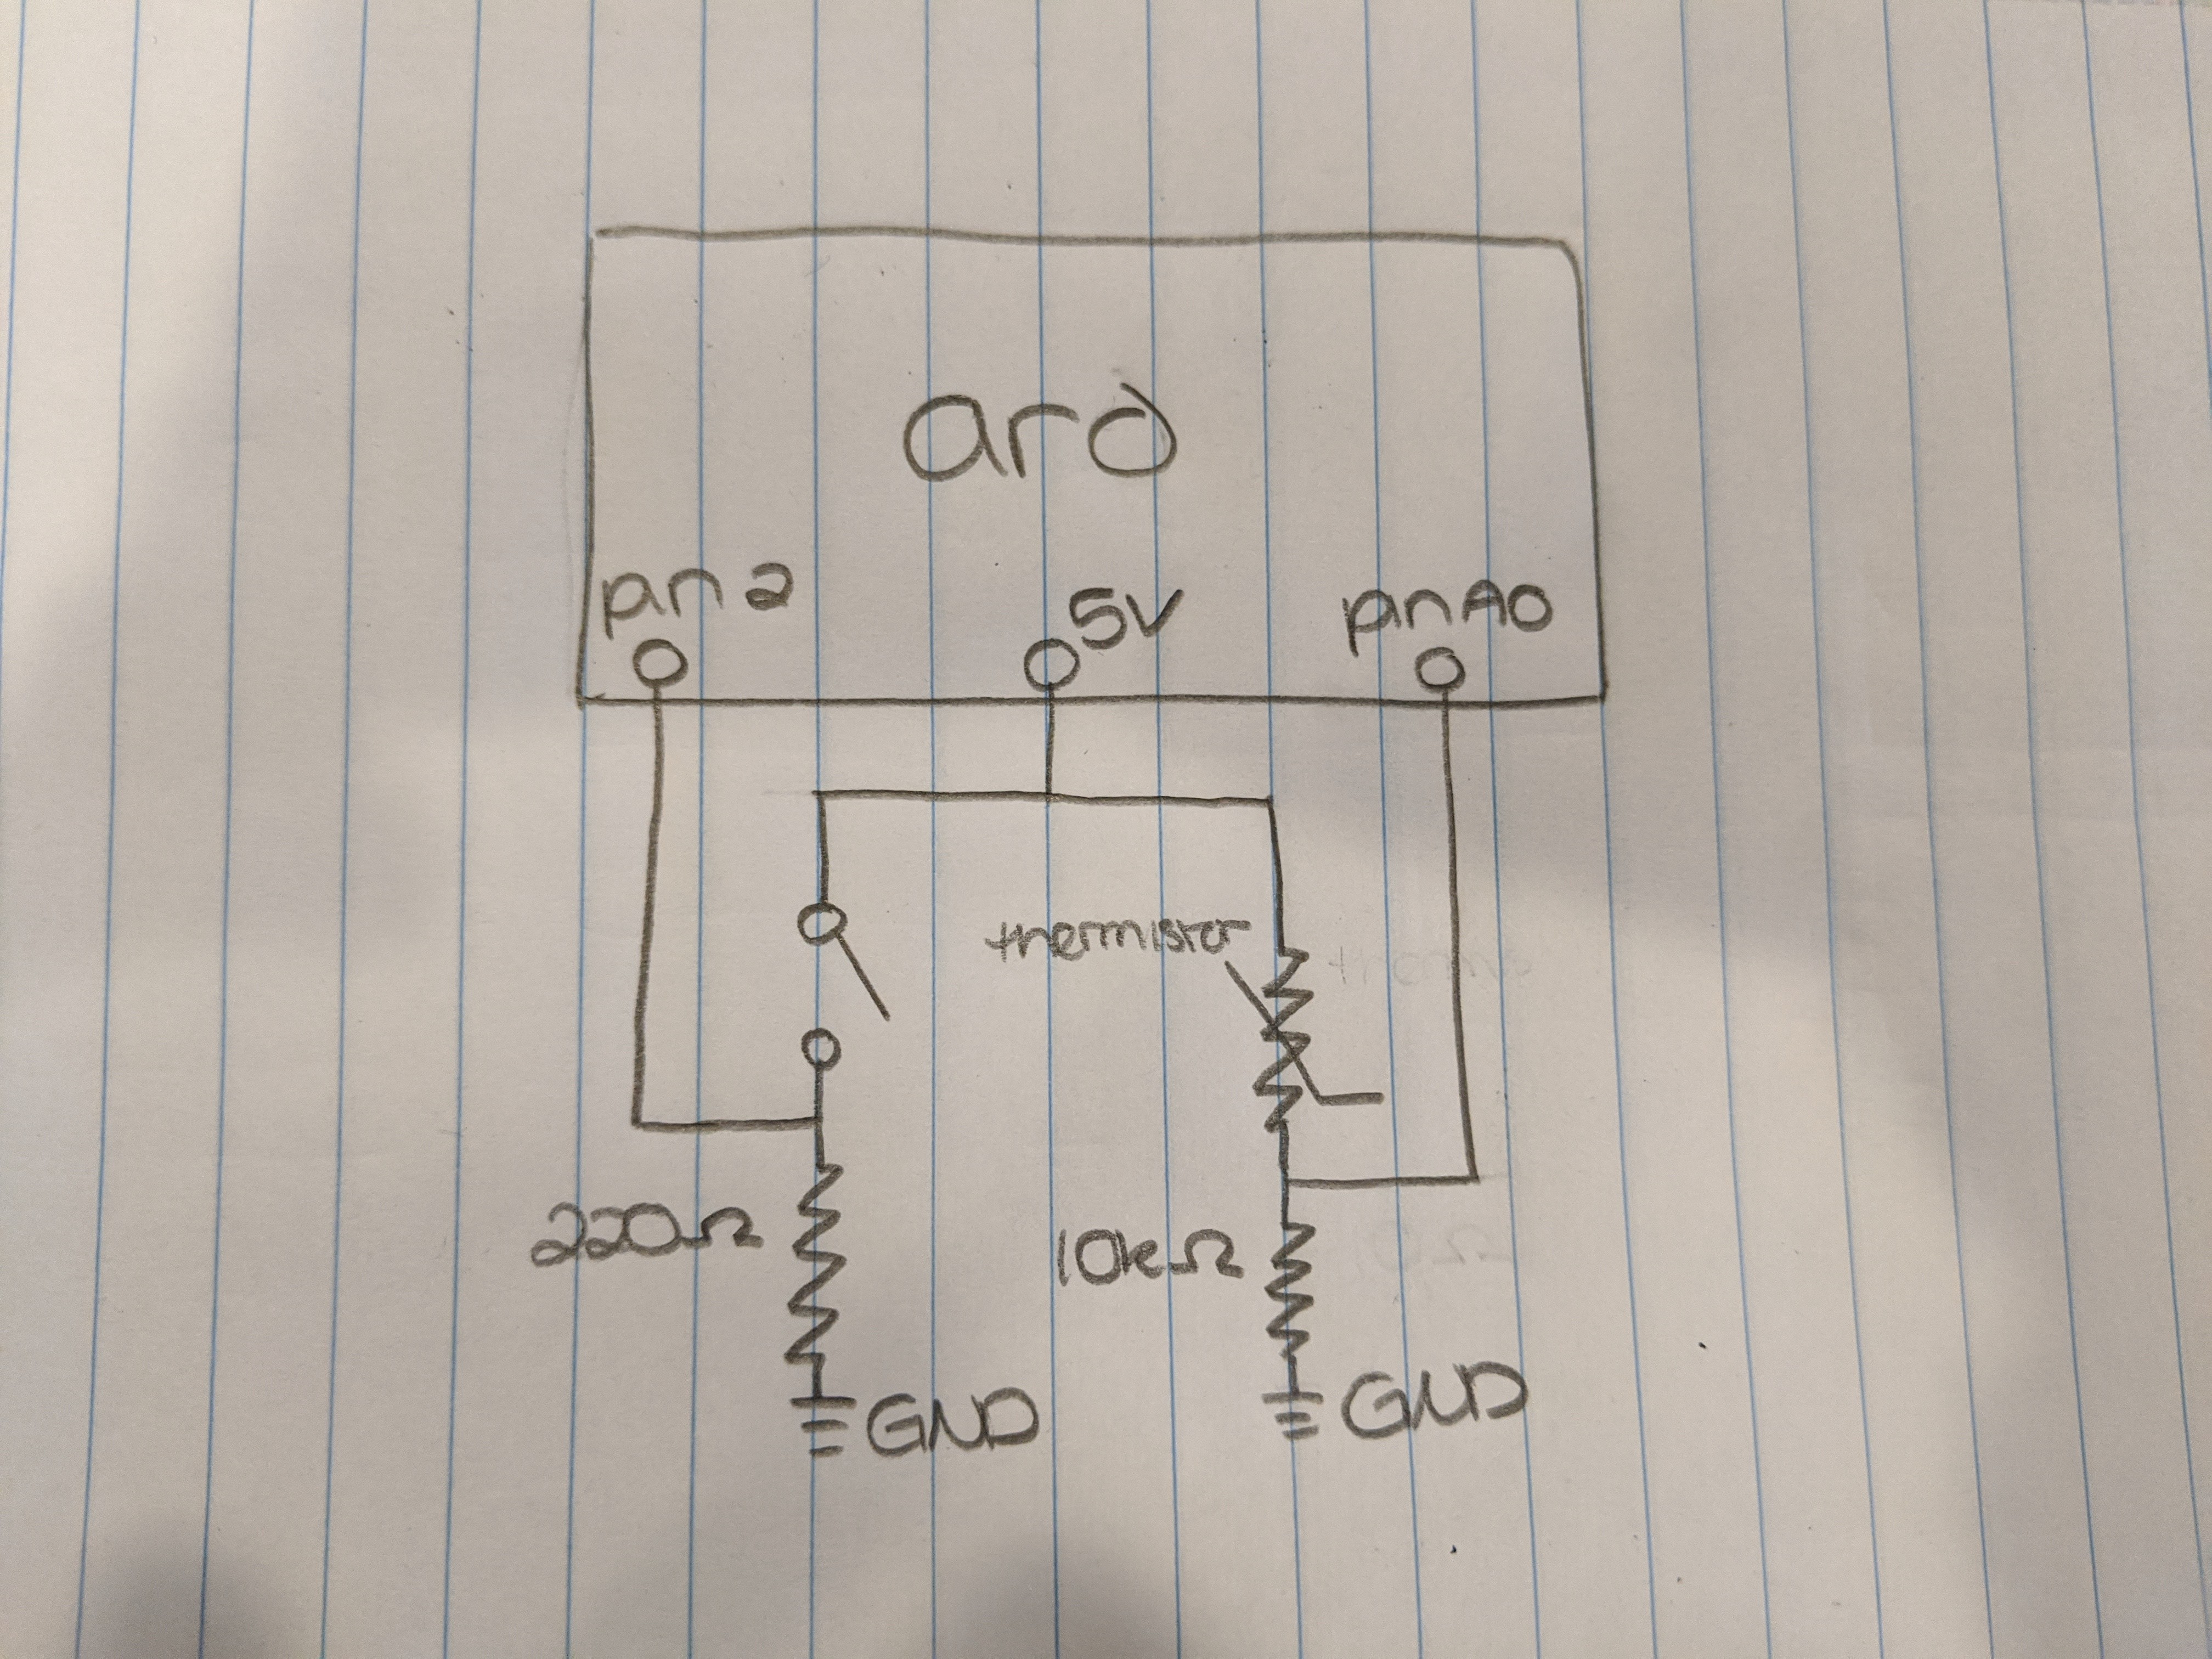 ard
pin 2
5V
pin A0
thermistor
220Ω
10kΩ
GND
GND